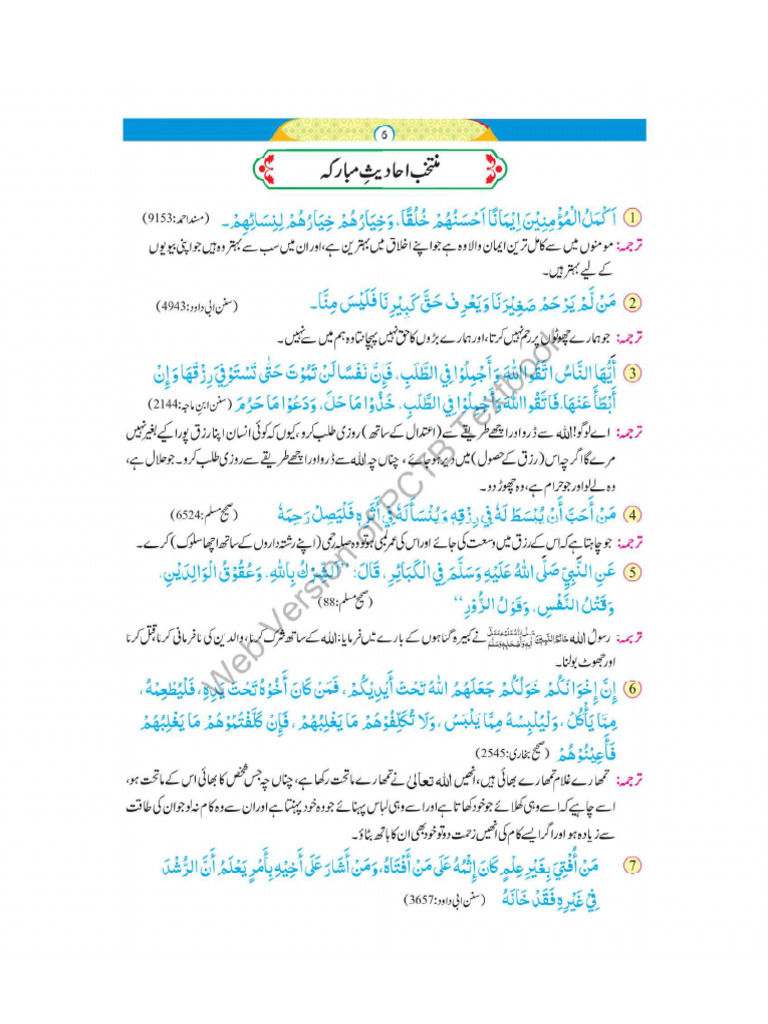 6
منتخب احادیثِ مبارکہ
1 اَكْمَلُ الْمُؤْمِنِيْنَ اِيْمَانًا اَحْسَنُهُمْ خُلُقًا، وَخِيَارُهُمْ خِيَارُهُمْ لِنِسَائِهِمْ۔ (مسند احمد: 9153)
ترجمہ: مومنوں میں سے کامل ترین ایمان والا وہ ہے جو اپنے اخلاق میں بہترین ہے، اور ان میں سب سے بہتر وہ ہیں جو اپنی بیویوں
کے لیے بہتر ہیں۔
2 مَنْ لَّمْ يَرْحَمْ صَغِيْرَنَا وَيَعْرِفْ حَقَّ كَبِيْرِنَا فَلَيْسَ مِنَّا۔ (سنن ابی داود: 4943)
ترجمہ: جو ہمارے چھوٹوں پر رحم نہیں کرتا، اور ہمارے بڑوں کا حق نہیں پہچانتا وہ ہم میں سے نہیں۔
3 أَيُّهَا النَّاسُ اتَّقُوا اللهَ وَأَجْمِلُوْا فِي الطَّلَبِ، فَإِنَّ نَفْسًا لَنْ تَمُوْتَ حَتّٰى تَسْتَوْفِيَ رِزْقَهَا وَإِنْ
أَبْطَأَ عَنْهَا، فَاتَّقُوا اللهَ وَأَجْمِلُوْا فِي الطَّلَبِ، خُذُوْا مَا حَلَّ، وَدَعُوْا مَا حَرُمَ (سنن ابن ماجہ: 2144)
ترجمہ: اے لوگو! اللہ سے ڈرو اور اچھے طریقے سے (اعتدال کے ساتھ) روزی طلب کرو، کیوں کہ کوئی انسان اپنا رزق پورا کیے بغیر نہیں
مرے گا اگرچہ اس (رزق کے حصول) میں دیر ہو جائے، چناں چہ اللہ سے ڈرو اور اچھے طریقے سے روزی طلب کرو۔ جو حلال ہے،
وہ لے لو اور جو حرام ہے، وہ چھوڑ دو۔
4 مَنْ أَحَبَّ أَنْ يُبْسَطَ لَهٗ فِي رِزْقِهٖ وَيُنْسَأَ لَهٗ فِي أَثَرِهٖ فَلْيَصِلْ رَحِمَهٗ (صحیح مسلم: 6524)
ترجمہ: جو چاہتا ہے کہ اس کے رزق میں وسعت کی جائے اور اس کی عمر لمبی ہو تو وہ صلہ رحمی (اپنے رشتہ داروں کے ساتھ اچھا سلوک) کرے۔
5 عَنِ النَّبِيِّ صَلَّى اللهُ عَلَيْهِ وَسَلَّمَ فِي الْكَبَائِرِ، قَالَ: ‘‘الشِّرْكُ بِاللهِ، وَعُقُوْقُ الْوَالِدَيْنِ،
وَقَتْلُ النَّفْسِ، وَقَوْلُ الزُّوْرِ’’ (صحیح مسلم: 88)
ترجمہ: رسولُ اللہ خَاتَمُ النَّبِيّٖنَ صلی اللہ علیہ وعلیٰ آلہٖ واصحابہٖ وسلم نے کبیرہ گناہوں کے بارے میں فرمایا: اللہ کے ساتھ شرک کرنا، والدین کی نافرمانی کرنا، قتل کرنا
اور جھوٹ بولنا۔
6 إِنَّ إِخْوَانَكُمْ خَوَلُكُمْ جَعَلَهُمُ اللهُ تَحْتَ أَيْدِيْكُمْ، فَمَنْ كَانَ أَخُوْهُ تَحْتَ يَدِهٖ، فَلْيُطْعِمْهُ،
مِمَّا يَأْكُلُ، وَلْيُلْبِسْهُ مِمَّا يَلْبَسُ، وَلَا تُكَلِّفُوْهُمْ مَا يَغْلِبُهُمْ، فَإِنْ كَلَّفْتُمُوْهُمْ مَا يَغْلِبُهُمْ
فَأَعِيْنُوْهُمْ (صحیح بخاری: 2545)
ترجمہ: تمھارے غلام تمھارے بھائی ہیں، انھیں اللہ تعالیٰ نے تمھارے ماتحت رکھا ہے، چناں چہ جس شخص کا بھائی اس کے ماتحت ہو،
اسے چاہیے کہ اسے وہی کھلائے جو خود کھاتا ہے اور اسے وہی لباس پہنائے جو وہ خود پہنتا ہے اور ان سے وہ کام نہ لو جو ان کی طاقت
سے زیادہ ہو اور اگر ایسے کام کی انھیں زحمت دو تو خود بھی ان کا ہاتھ بٹاؤ۔
7 مَنْ أُفْتِيَ بِغَيْرِ عِلْمٍ كَانَ إِثْمُهُ عَلَى مَنْ أَفْتَاهُ، وَمَنْ أَشَارَ عَلَى أَخِيْهِ بِأَمْرٍ يَعْلَمُ أَنَّ الرُّشْدَ
فِيْ غَيْرِهِ فَقَدْ خَانَهُ (سنن ابی داود: 3657)
Web Version of PCTB Textbook